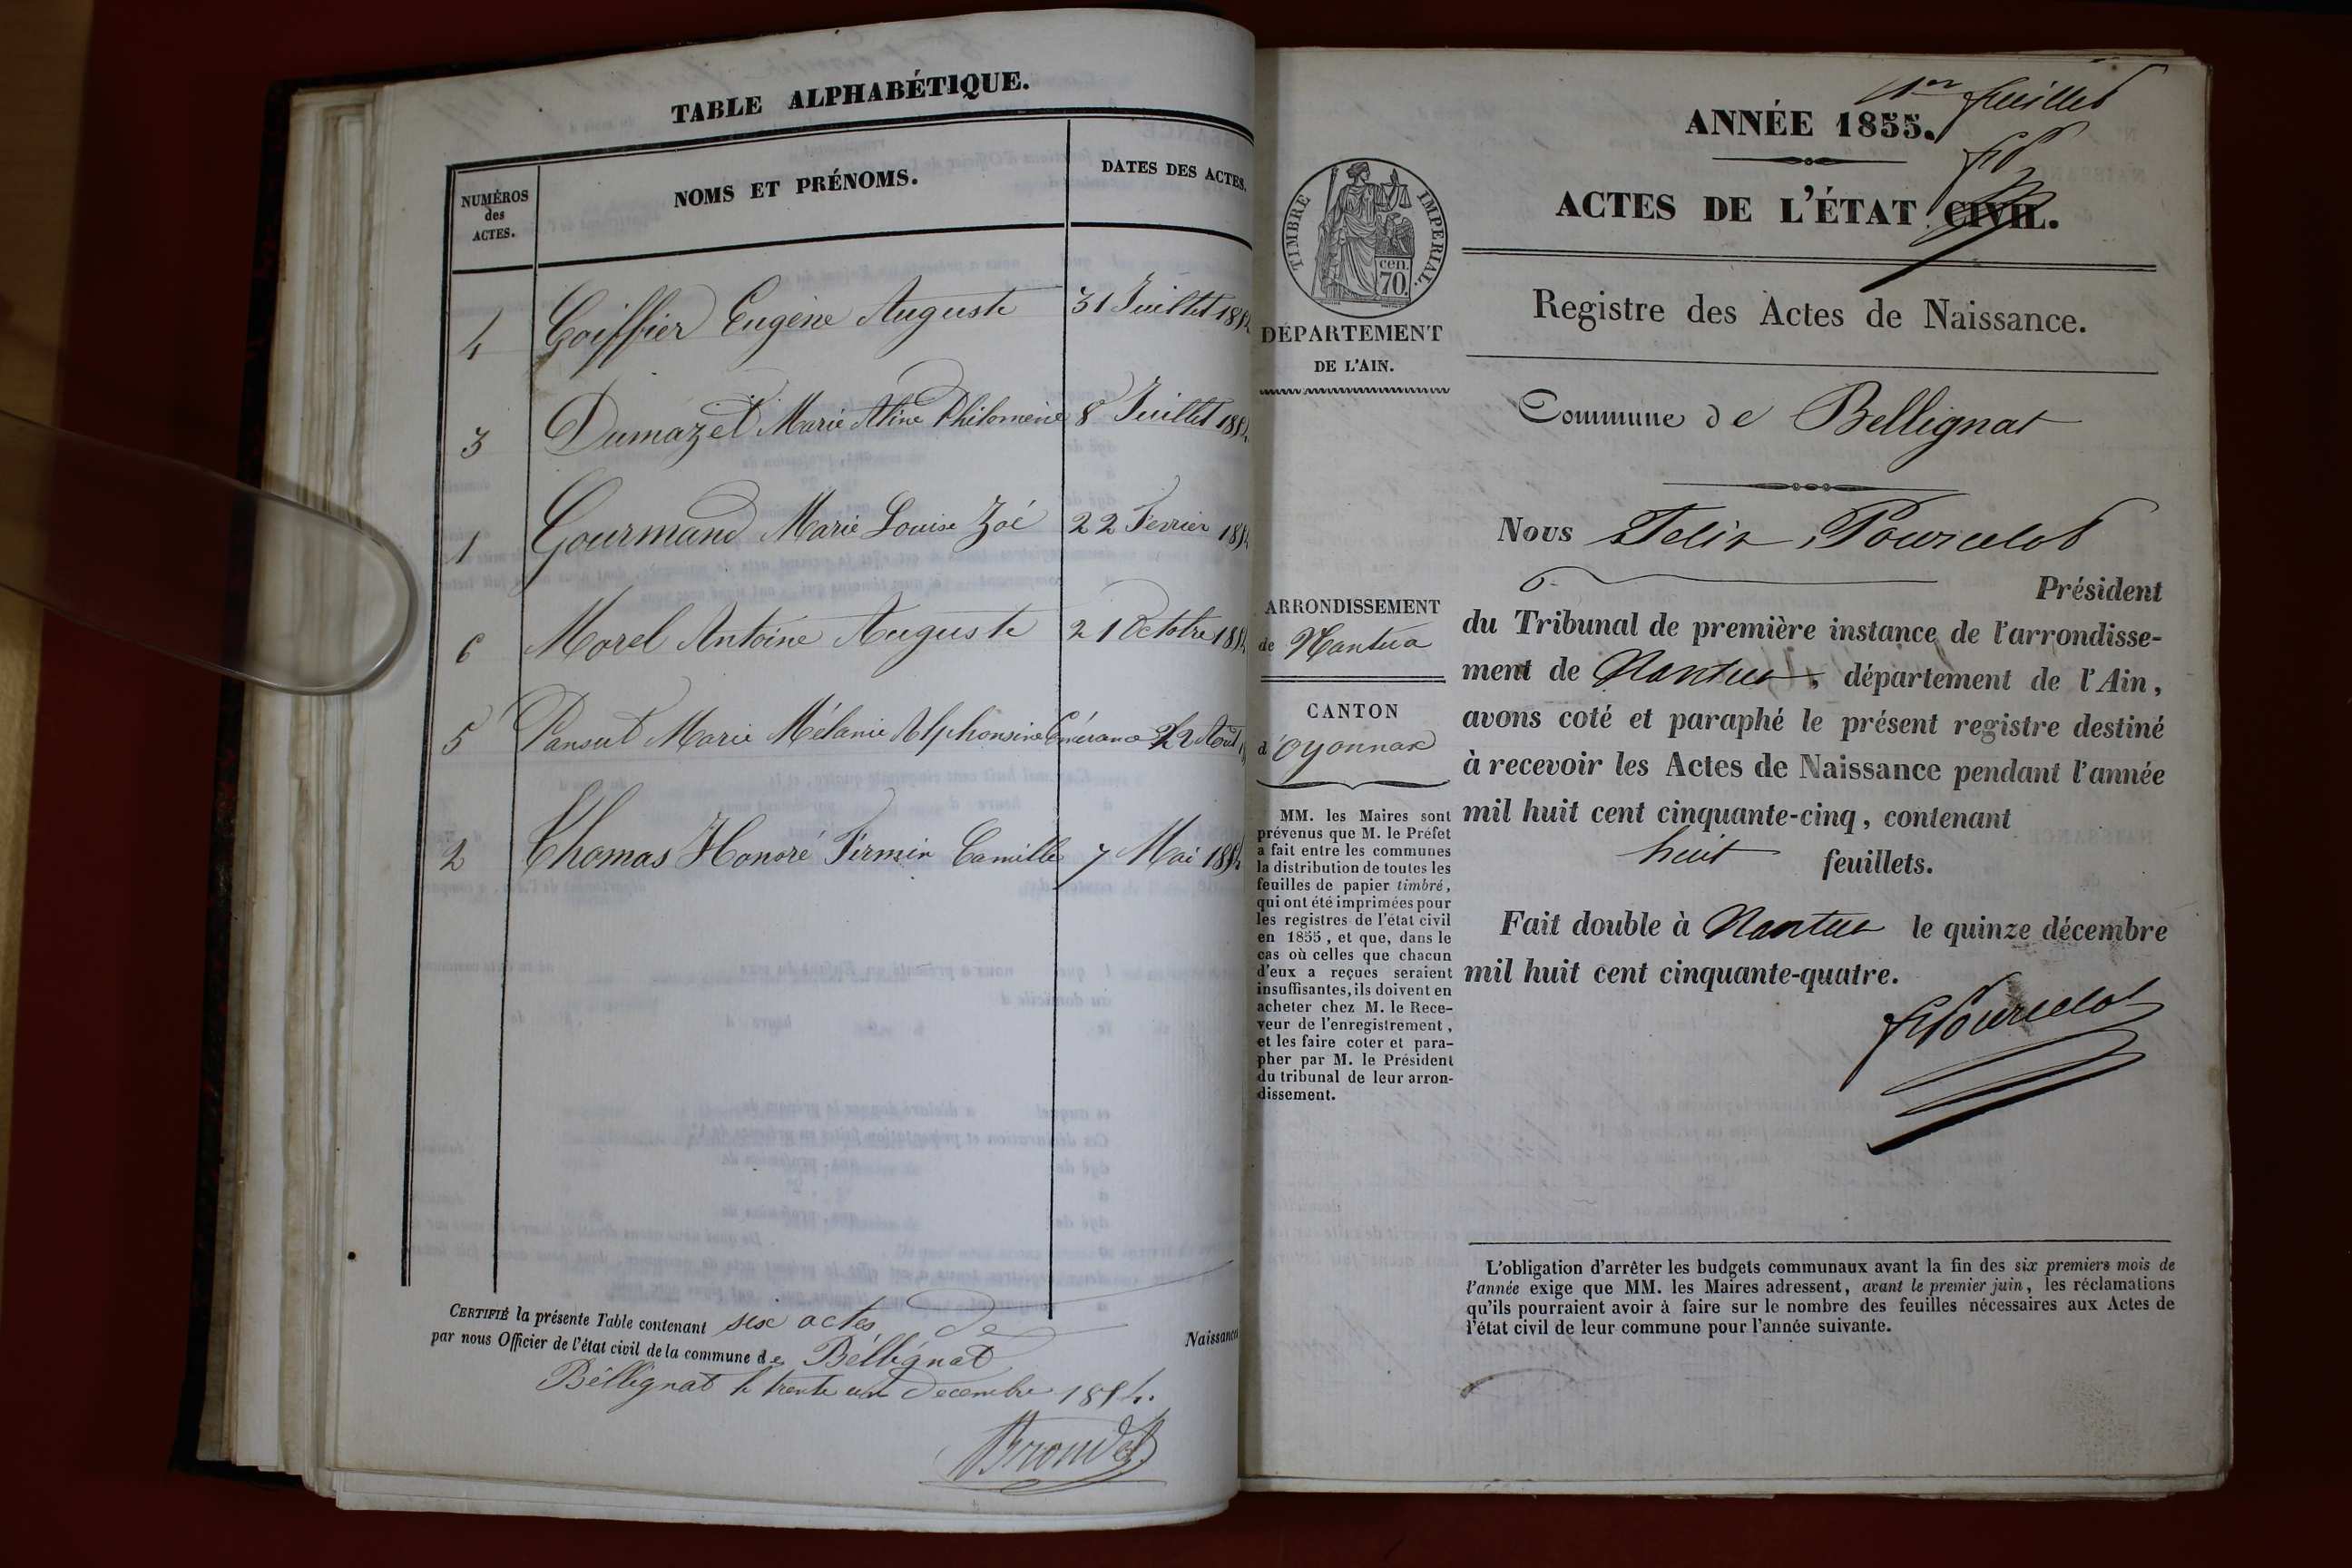 TABLE ALPHABÉTIQUE.
NUMÉROS
des
ACTES.
NOMS ET PRÉNOMS.
DATES DES ACTES.
4 Goiffier Eugène Auguste 31 Juillet 1854
3 Dumazet Marie Aline Philomène 8 Juillet 1854
1 Gourmand Marie Louise Zoé 22 Fevrier 1854
6 Morel Antoine Auguste 21 Octobre 1854
5 Pansut Marie Mélanie Alphonsine Emérance 22 Aout
2 Thomas Honoré Firmin Camille 7 Mai 1854
CERTIFIÉ la présente Table contenant six actes de Naissance
par nous Officier de l'état civil de la commune de Béllignat
Béllignat le trente un Decembre 1854.
1er feuillet
ANNÉE 1855.
ACTES DE L'ÉTAT CIVIL.
TIMBRE IMPERIAL.
cen.
70.
DÉPARTEMENT
DE L'AIN.
Registre des Actes de Naissance.
Commune de Bellignat
Nous Felix Pourcelot
Président
du Tribunal de première instance de l'arrondisse-
ment de Nantua, département de l'Ain,
avons coté et paraphé le présent registre destiné
à recevoir les Actes de Naissance pendant l'année
mil huit cent cinquante-cinq, contenant
huit feuillets.
Fait double à Nantua le quinze décembre
mil huit cent cinquante-quatre.
fPourcelot
ARRONDISSEMENT
de Nantua
CANTON
d'Oyonnax
MM. les Maires sont
prévenus que M. le Préfet
a fait entre les communes
la distribution de toutes les
feuilles de papier timbré,
qui ont été imprimées pour
les registres de l'état civil
en 1855, et que, dans le
cas où celles que chacun
d'eux a reçues seraient
insuffisantes, ils doivent en
acheter chez M. le Rece-
veur de l'enregistrement,
et les faire coter et para-
pher par M. le Président
du tribunal de leur arron-
dissement.
L'obligation d'arrêter les budgets communaux avant la fin des six premiers mois de
l'année exige que MM. les Maires adressent, avant le premier juin, les réclamations
qu'ils pourraient avoir à faire sur le nombre des feuilles nécessaires aux Actes de
l'état civil de leur commune pour l'année suivante.